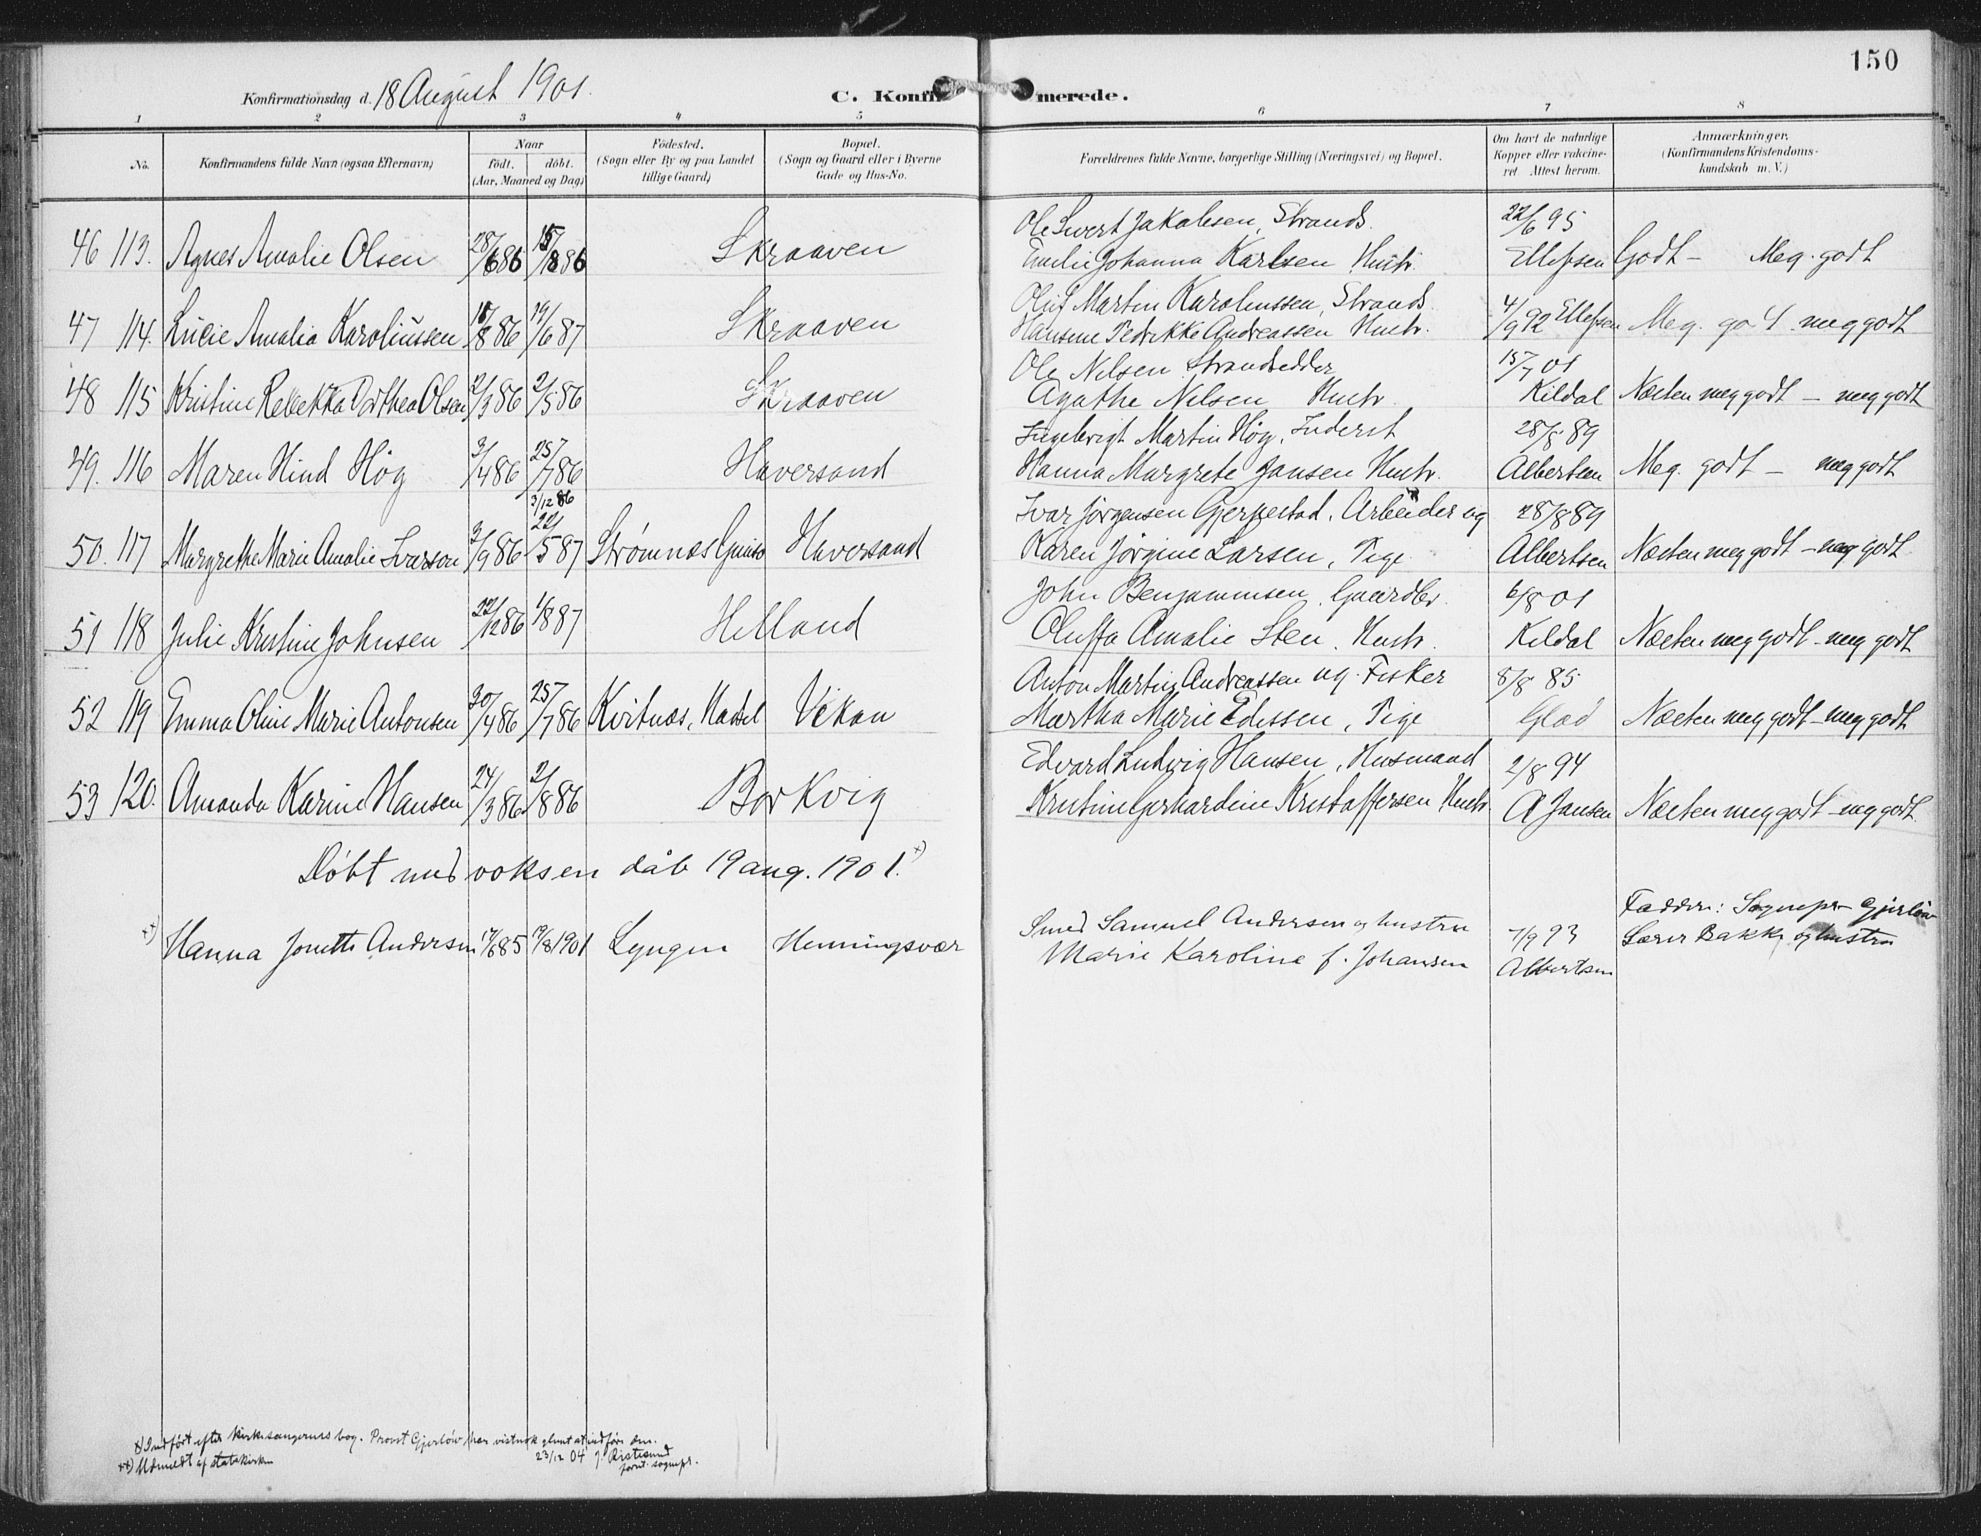 150
Konfirmationsdag d. 18 August 1901.
C. Konfirmerede.
1 2 3 4 5 6 7 8
No.
Konfirmandens fulde Navn (ogsaa Efternavn)
Naar
født. døbt.
(Aar, Maaned og Dag)
Fødested.
(Sogn eller By og paa Landet
tillige Gaard)
Bopæl.
(Sogn og Gaard eller i Byerne
Gade og Hus-No.
Forældrenes fulde Navne, borgerlige Stilling (Næringsvei) og Bopæl.
Om havt de naturlige
Kopper eller vakcine-
ret Attest herom.
Anmærkninger.
(Konfirmandens Kristendoms-
kundskab m. V.)
Ole Sivert Jakobsen, Strands. 22/6 95
46 113. Agnes Amalie Olsen 28/6 86 15/8 86 Skraaven Emelie Johanna Karlsen Hustr. Ellefsen Godt – Meg. godt
Oluf Martin Karoliussen, Strands.
47 114. Lucie Amalia Karoliussen 18/8 86 19/6 87 Skraaven Hansine Pedrikke Andreassen Hustr. 4/9 92 Ellefsen Meg. godt meg godt
Ole Nilsen Strandsidder 15/7 01
48 115 Kristine Rebekka Dorthea Olsen 12/3 86 2/5 86 Skraaven Agathe Nilsen Hustr. Kildal Næsten meg godt – meg godt
Ingebrigt Martin Høg, Inderst 28/8 89
49. 116 Maren Hind Høg 3/4 86 25/7 86 Haversand Hanna Margrete Jansen Hustr. Albertsen Meg. godt – meg godt
3/12 86
Ivar Jørgensen Gjerpestad, Arbeider og 28/8 89
50. 117 Margrethe Marie Amalie Ivarson 3/9 86 22/5 87 Strømnæs Gimsø Haversand Karen Jørgine Larsen, Pige Albertsen Næsten meg godt – meg godt
John Benjaminsen, Gaardbr. 6/8 01
51 118 Julie Kristine Johnsen 22/12 86 1/8 87 Helland Oluffa Amalie Sten, Hustr. Kildal Næsten meg godt – meg godt
Anton Martin Andreassen ug. Fisker 8/8 85
52 119 Emma Oline Marie Antonsen 30/4 86 25/7 86 Kvitnæs, Hadsel Vikan Martha Marie Edissen, Pige Glad Næsten meg godt – meg godt
Edvard Ludvig Hansen, Husmand 2/8 94
53 120. Amanda Karine Hansen 24/3 86 2/8 86 Borkvig Kristine Gerhardine Kristoffersen Hustr A Jansen Næsten meg godt – meg godt.
Døbt med voksen dåb 19 aug. 1901. x)
Faddere: Sognepr Gjerløw
Smed Samuel Andersen og hustru 7/9 93 Lærer Bakke og hustru
xx) Hanna Jonette Andersen 17/6 85 19/8 1901 Lyngen Henningsvær Marie Karoline f. Johansen Albertsen
x) Indført efter kirkesangerens bog. Provst Gjerløw har vistnok glemt at indføre den.
23/12 04 J. Ristesund
xx) Udmeldt af statskirken
forst. sognepr.